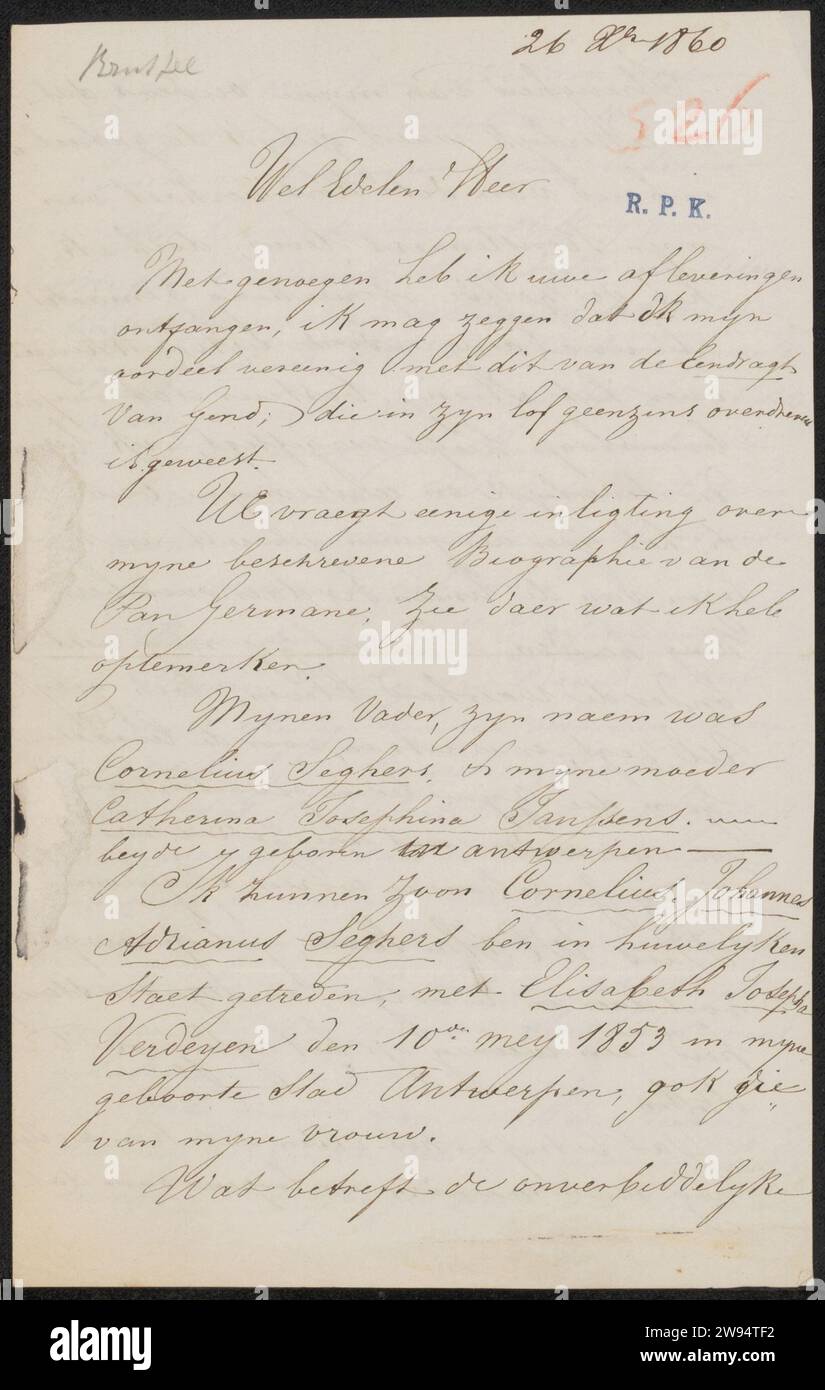 Brussel
26 Xbr 1860
526
Wel Edelen Heer
R. P. K.
Met genoegen heb ik uwe afleveringen
ontfangen, ik mag zeggen dat ik myn
oordeel vereenig met dit van de Eendragt
van Gend, die in zyn lof geenzins overdreven
is geweest.
UE vraegt eenige inligting over
myne beschrevene Biographie van de
Pan Germane. Zie daer wat ik heb
optemerken.
Mynen Vader, zyn naem was
Cornelius Seghers. & myne moeder
Catherina Josephina Janssens.
beyde geboren antwerpen —
Ik hunnen zoon Cornelius Johannes
Adrianus Seghers ben in huwelyken
Staet getreden, met Elisabeth Josepha
Verdeyen den 10den mey 1853 in myne
geboorte Stad Antwerpen, ook die
van myne vrouw.
Wat betreft de onverbiddelyke
alamy
alamy
Image ID: 2W94TF2
www.alamy.com